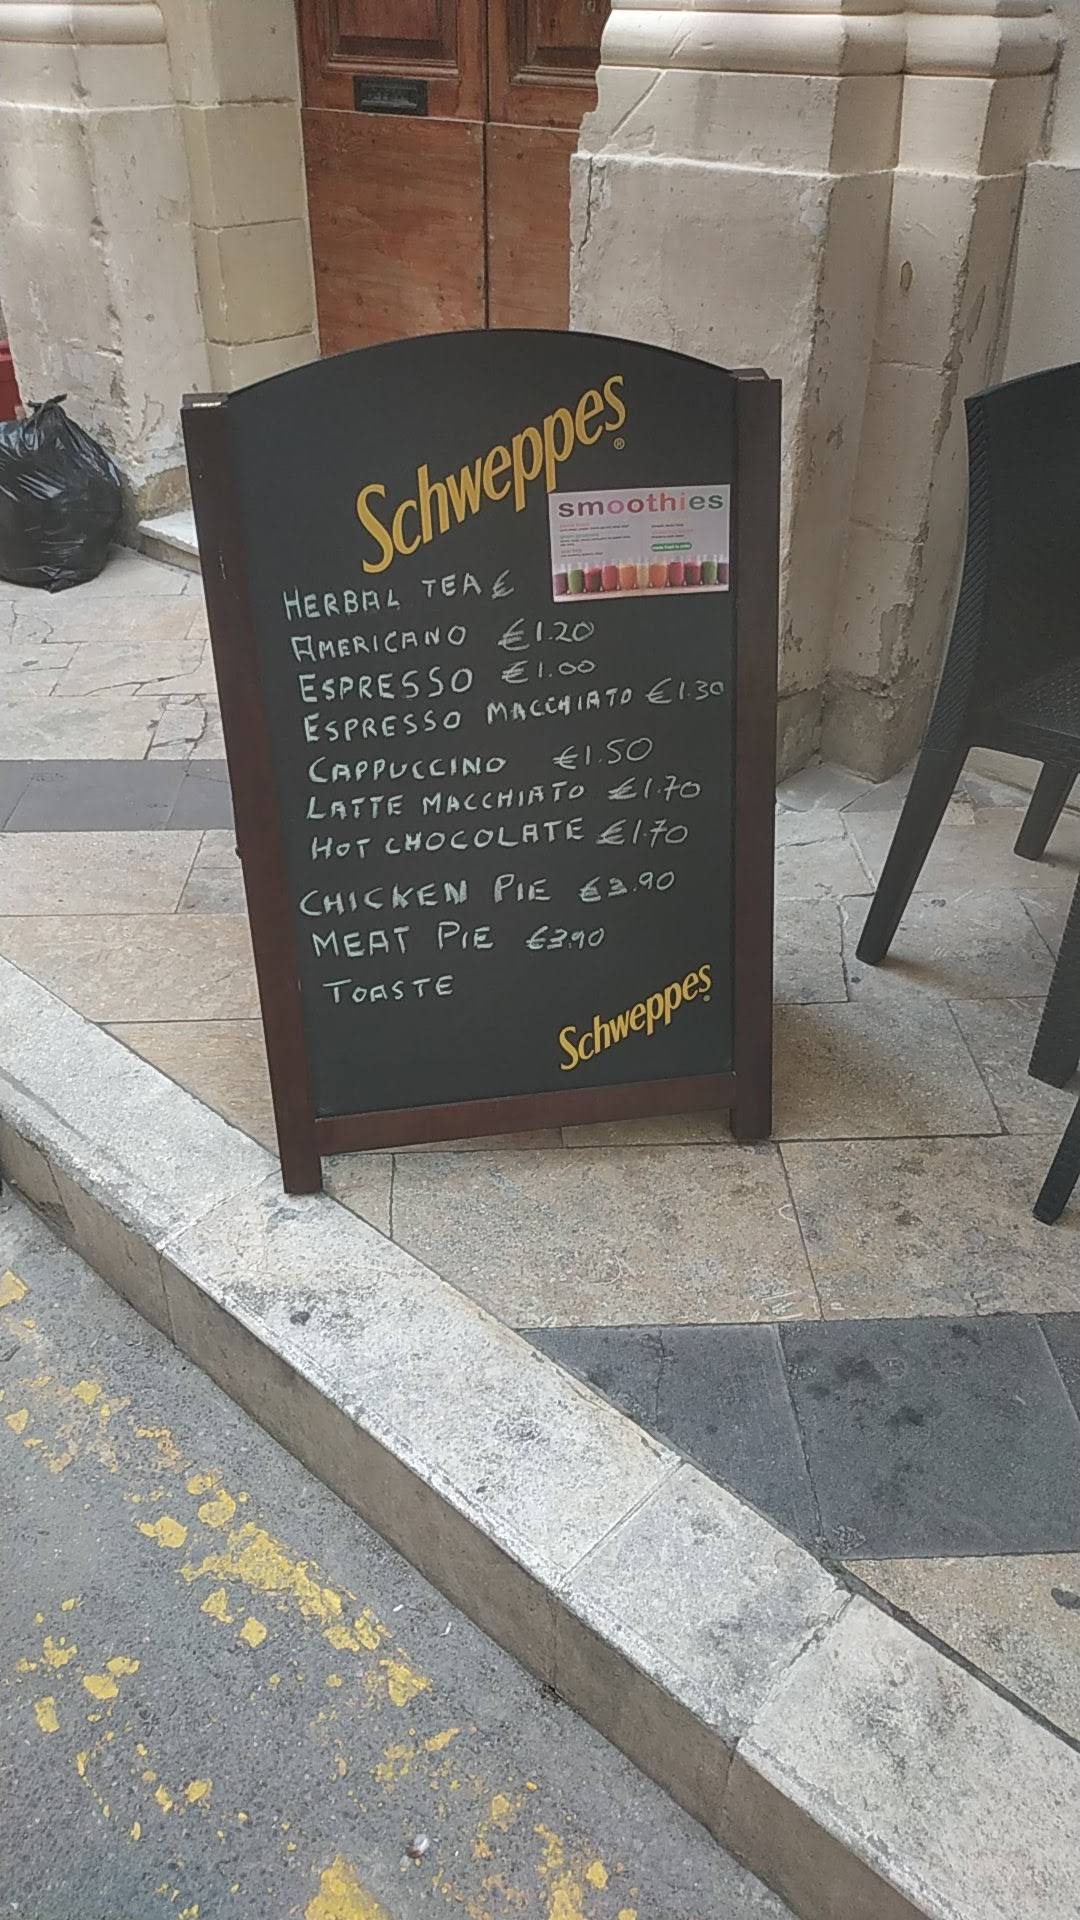 Schweppes®
smoothies
HERBAL TEA €
AMERICANO €1.20
ESPRESSO €1.00
ESPRESSO MACCHIATO €1.30
CAPPUCCINO €1.50
LATTE MACCHIATO €1.70
HOT CHOCOLATE €1.70
CHICKEN PIE €3.90
MEAT PIE €3.90
TOASTE
Schweppes